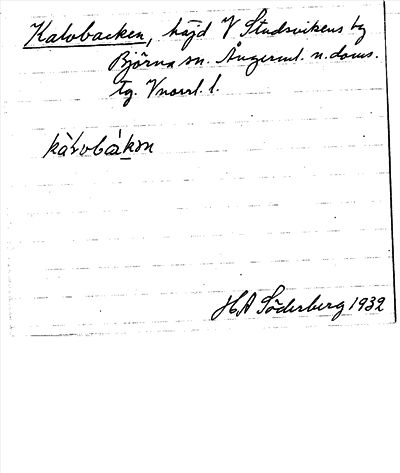 Kalvbacken, höjd V Studsvikens by
Björna sn. Ångerml. n. doms.
tg. Vnorrl. l.
kàlvbákən
HA Söderberg 1932